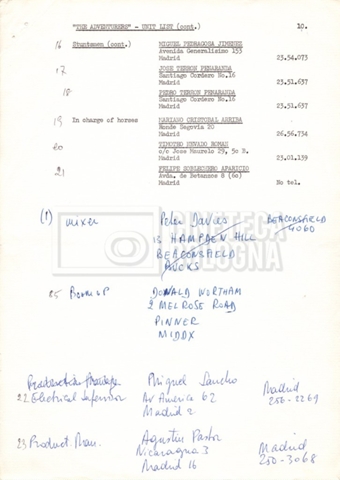 "THE ADVENTURERS" - UNIT LIST (cont.) 10.
16 Stuntmen (cont.) MIGUEL PEDRAGOSA JIMENEZ
Avenida Generalisimo 155
Madrid 23.54.073
17 JOSE TERRON PENARANDA
Santiago Cordero No.16
Madrid 23.51.637
18 PEDRO TERRON PENARANDA
Santiago Cordero No.16
Madrid 23.51.637
19 In charge of horses MARIANO CRISTOBAL ARRIBA
Conde Segovia 20
Madrid 26.56.734
20 TIMOTEO NEVADO ROMAN
c/o Jose Maurelo 29, 5o B.
Madrid 23.01.139
21 FELIPE
Avda. de Betanzos 8 (60)
Madrid No tel.
(1) mixer Peter Davies BEACONSFIELD
15 HAMPDEN HILL 4060
BEACONSFIELD
BUCKS
25 Boom op DONALD WORTHAM
2 MELROSE ROAD
PINNER
MIDDX
Production Manager Miguel Sancho Madrid
22 Electrical Supervisor Av America 62 256-2269
Madrid 2
23 Product. Man. Agustin Pastor Madrid
Nicaragua 3 250-3068
Madrid 16
CINETECA
BOLOGNA